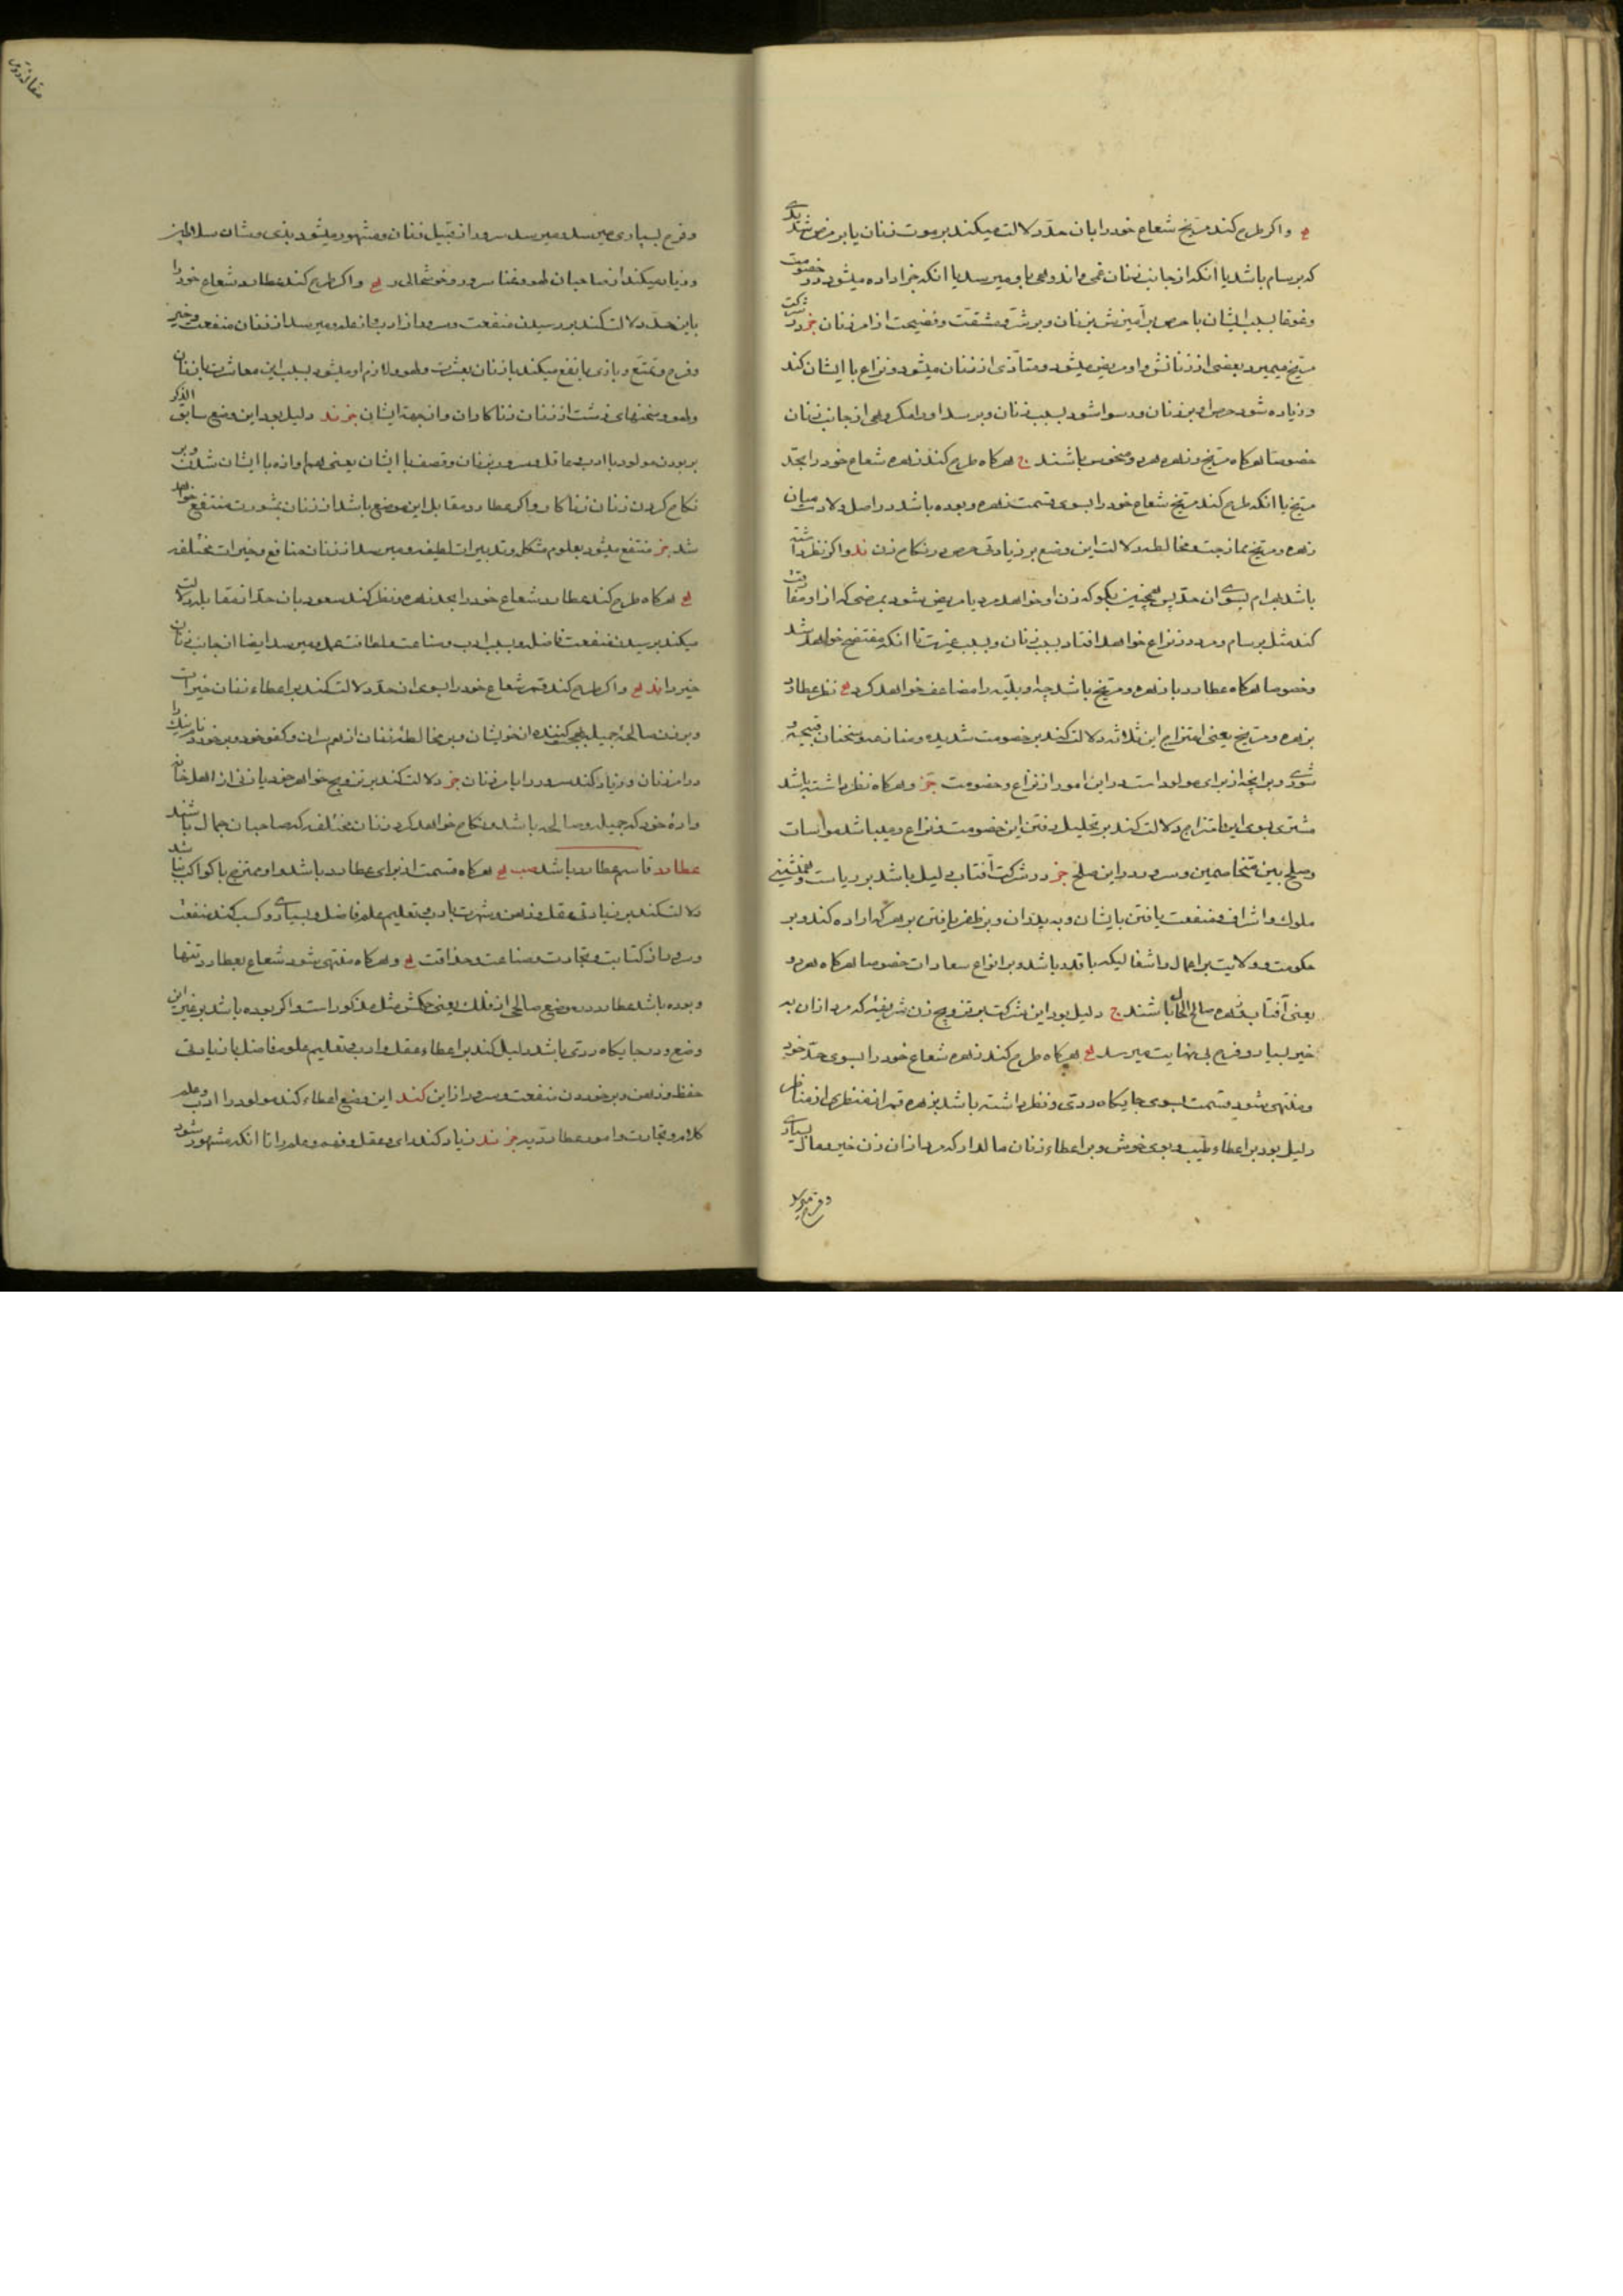 واکر طرح کند مریخ شعاع خود را بان حد دلالت میکند بر موت زنان یا بر مرض شدیدی
که برسام باشد یا انکه از جانب زنان غمی و اندوهی باو میرسد یا انکه جزا داده میشود در خصومت
وغوغا بسبب ایشان با حرص بر آمیزش بزنان وبر شر ومشقت وفضیحت از امر زنان جز در شرکت
مریخ میمیرد بعضی از زنانش واو مریض میشود ومتأذی از زنان میشود ونزاع با ایشان کند
وزیاده شود حرص او بر زنان ورسوا شود بسبب زنان وبرسد او را مکروهی از جانب زنان
خصوصا هرکاه مریخ وزهره هردو منحوس باشند ج هرکاه طرح کند زهره شعاع خود را بحد
مریخ یا انکه طرح کند مریخ شعاع خود را بسوی قسمت زهره وبوده باشد در اصل ولادت میان
زهره ومریخ ممازجت ومخالطه دلالت این وضع بر زیادتی حرص در نکاح زن ند واکر نظر داشته
باشد بهرام بسوی ان حد پس همچنین بکو که زن او خواهد مرد یا مریض شود بمرضی که از او مفارقت
کند مثل برسام ومرد در نزاع خواهد افتاد بسبب زنان وبسبب غیرت تا انکه مفتضح خواهد شد
وخصوصا هرکاه عطارد با زهره ومریخ باشد چه او بلیه را مضاعف خواهد کرد نظر عطارد
بزهره ومریخ یعنی امتزاج این ثلاثه دلالت کند بر خصومت شدیده ومنازعه وسخنان قبیحه و
شوری وبر انچه از برای مولود است در این امور از نزاع وخصومت جز وهرکاه نظر داشته باشد
مشتری بسوی این امتزاج دلالت کند بر تحلیل رفتن این خصومت ونزاع ومیباشد مواسات
وصلح بین متخاصمین وسرور در این صلح جز در شرکت آفتاب دلیل باشد بر ریاست وهمنشینی
ملوک واشراف ومنفعت یافتن بایشان وبه پدران وبر ظفر یافتن بر هر که اراده کند وبر
حکومت وولایت بر اعمال واشغالیکه باقدر باشد وبر انواع سعادات خصوصا هرکاه هردو
یعنی آفتاب وزهره صالح الحال باشند ج دلیل بود این شرکت بر تزویج زن شریفه که مرد از ان به
خیر بسیار وفرح بی نهایت میرسد هرکاه طرح کند زهره شعاع خود را بسوی حد خود
ومنتهی شود قسمت بسوی جایکاه ردی ونظر داشته باشد بزهره قمر از منظری از مناظر
دلیل بود بر اعطاء طیب وبوی خوش وبر اعطاء زنان مالدار که مرد از ان زن خیر ومال بسیاری
وفرح میرسد
وفرح بسیاری میرسد ومیرسد سرور از قبیل زنان ومشهور میشود بذی ومشان سلاطین
وزیاد میکند از صاحبان لهو وغنا سرور وخوشحالی ر واکر طرح کند عطارد شعاع خود را
باین حد دلالت کند بر رسیدن منفعت وسرور از ادب واز علم ومیرسد از زنان منفعت وخیر
وفرح وتمتع وبازی با نفع میکند با زنان بعشرت ولهو ولازم او میشود بسبب این معاشرت با زنان
ولهو وسخنهای زشت از زنان زناکاران واز جهة ایشان جز ند دلیل بود این وضع سابق الذکر
بر بودن مولود با ادب وعاقل ومسرور بزنان وقصف با ایشان یعنی هم اوازه با ایشان شدن وبر
نکاح کردن زنان زناکار واکر عطارد مقابل این موضع باشد از زنان بمشورت منتفع خواهد
شد جز منتفع میشود بعلوم مشکل وتدبیرات لطیفه ومیرسد از زنان منافع وخیرات مختلفه
هرکاه طرح کند عطارد شعاع خود را بحد زهره ونظر کند سعود بان حد از مقابله دلالت
میکند برسیدن منفعت فاضل وبسبب ادب وصناعت ولطافت عمل ومیرسد ایضا از جانب زنان
خیر را ند واکر طرح کند قمر شعاع خود را بسوی ان حد دلالت کند بر اعطاء زنان خیرات
وبر زن صالحهٔ جمیله از خویشان وبر مخالطهٔ زنان از همسران وکفو خود وبر خوردن نام نیک را
در امر زنان وزیاد کند سرور را بامر زنان جز دلالت کند بر تزویج خواهر خود یا زنی از اهل خانه
واده خود که جمیله وصالحه باشد ونکاح خواهد کرد زنان مختلفه که صاحبان جمال باشند
عطارد قاسم عطارد باشد صب هرکاه قسمت از برای عطارد باشد واو ممتزج با کواکب نباشد
دلالت کند بر زیادتی عقل وذهن وشهرت بادب وتعلیم علم فاضل وبسیاری وکسب کند منفعت
وسرور از کتابت وتجارت وصناعت وحذاقت وهرکاه منتهی شود شعاع بعطارد تنها
وبوده باشد عطارد در موضع صالحی از فلک یعنی حکمش مثل مذکور است واکر بوده باشد بر غیر این
وضع ودر جایکاه ردی باشد دلیل کند بر اعطاء عقل وادب وتعلیم علوم فاضل با زیادتی
حفظ وذهن وبر خوردن منفعت وسرور از این کند این وضع اعطاء کند مولود را ادب وعلم
کلام وتجارت وامور عطاردیه جز ند زیاد کند رای وعقل وفهم وعلم را تا انکه مشهور شود